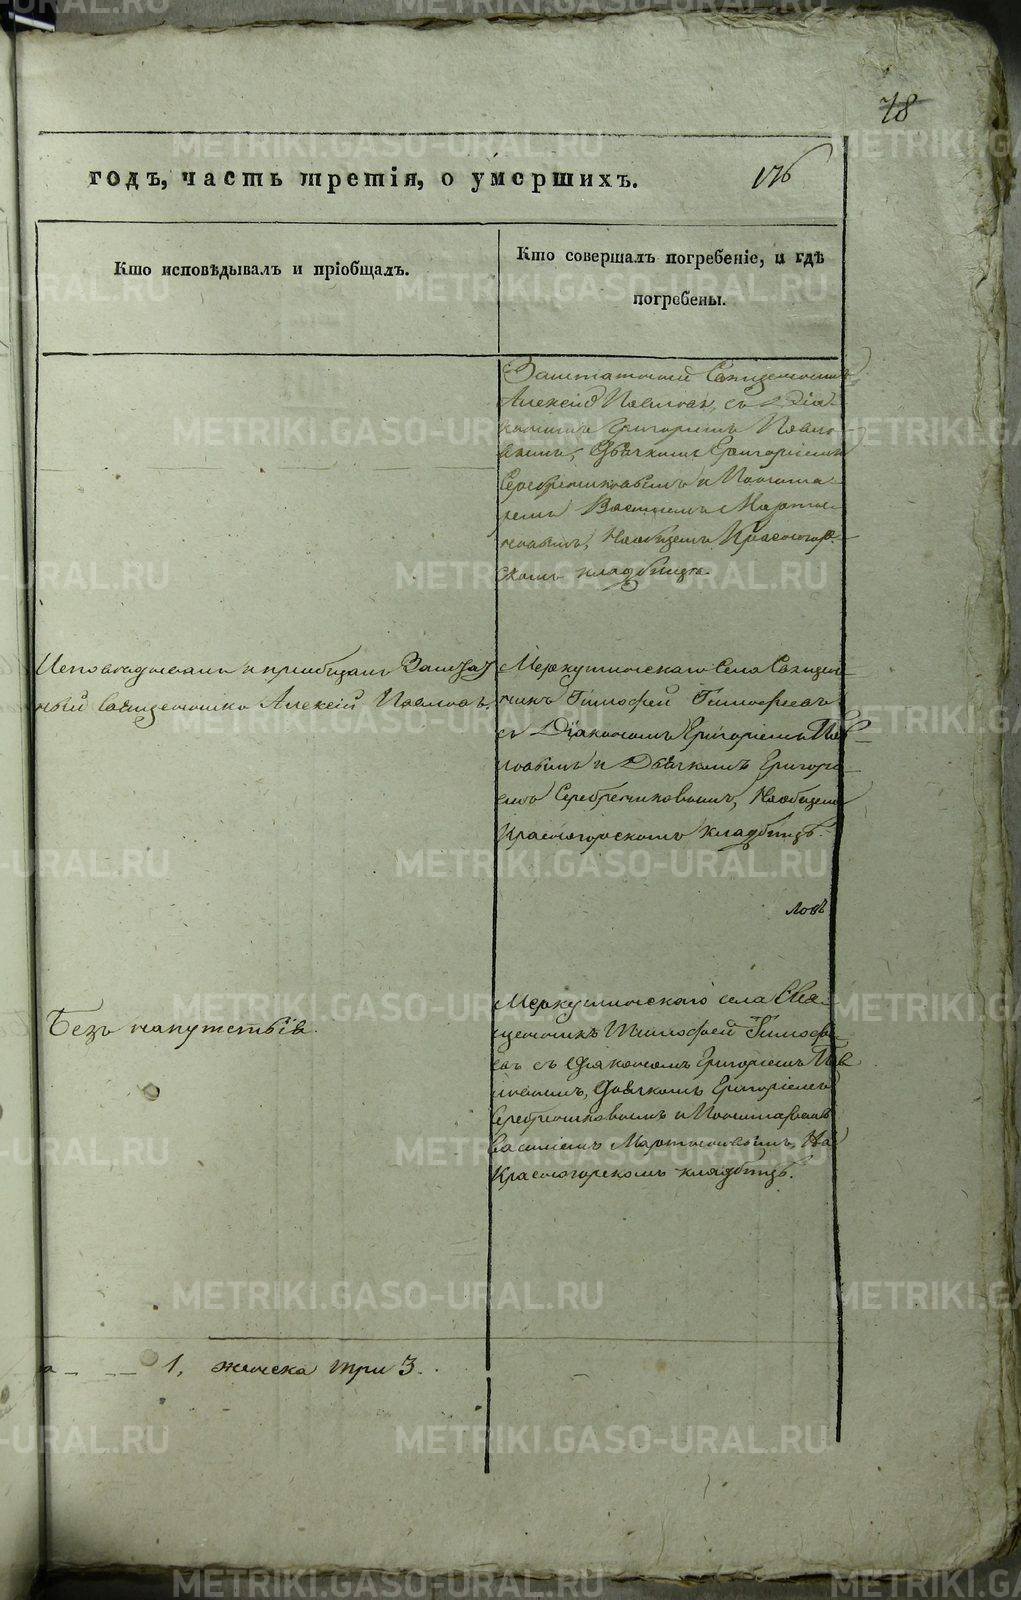 78
годъ, часть третія, о умершихъ.
176
Кто исповѣдывалъ и пріобщалъ.
Кто совершалъ погребеніе, и гдѣ
погребены.
Заштатный Священникъ
Алексій Павловъ, съ Діа-
кономъ Григоріемъ Павло-
вымъ, Дьячкомъ Григоріемъ
Серебрениковымъ и Понома-
ремъ Васильемъ Марты-
новымъ, На общемъ Красногор-
скомъ кладбищѣ.
Исповѣдывалъ и приобщалъ Заштат
ный священникъ Алексій Павловъ.
Меркушинскаго Села Священ-
никъ Тимофей Тимофеевъ
съ Діакономъ Григоріемъ Пав-
ловымъ и Дьячкомъ Григорі-
емъ Серебрениковымъ, На общемъ
Красногорскомъ кладбищѣ.
ловъ
Безъ напутствія.
Меркушинскаго села Свя-
щенникъ Тимофей Тимофе-
евъ съ Діакономъ Григоріемъ Пав
ловымъ, Дьячкомъ Григоріемъ
Серебрениковымъ и Пономаремъ
Василіемъ Мартыновымъ, На
Красногорскомъ кладбищѣ.
1, женска три 3.
METRIKI.GASO-URAL.RU